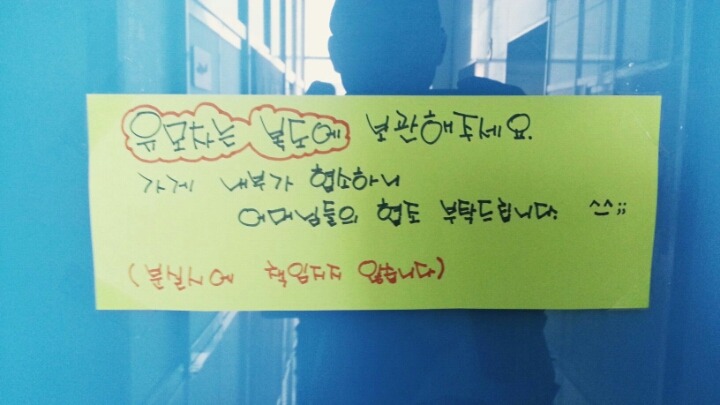 유모차는 복도에 보관해주세요.
가게 내부가 협소하니
어머님들의 협조 부탁드립니다. ^^;;
책임지지 않습니다)